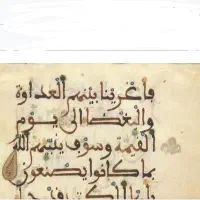 فاغرينا بينهم العداوة
والبغضا الى يوم
القيمة وسوف ينبئهم الله
بما كانوا يصنعون